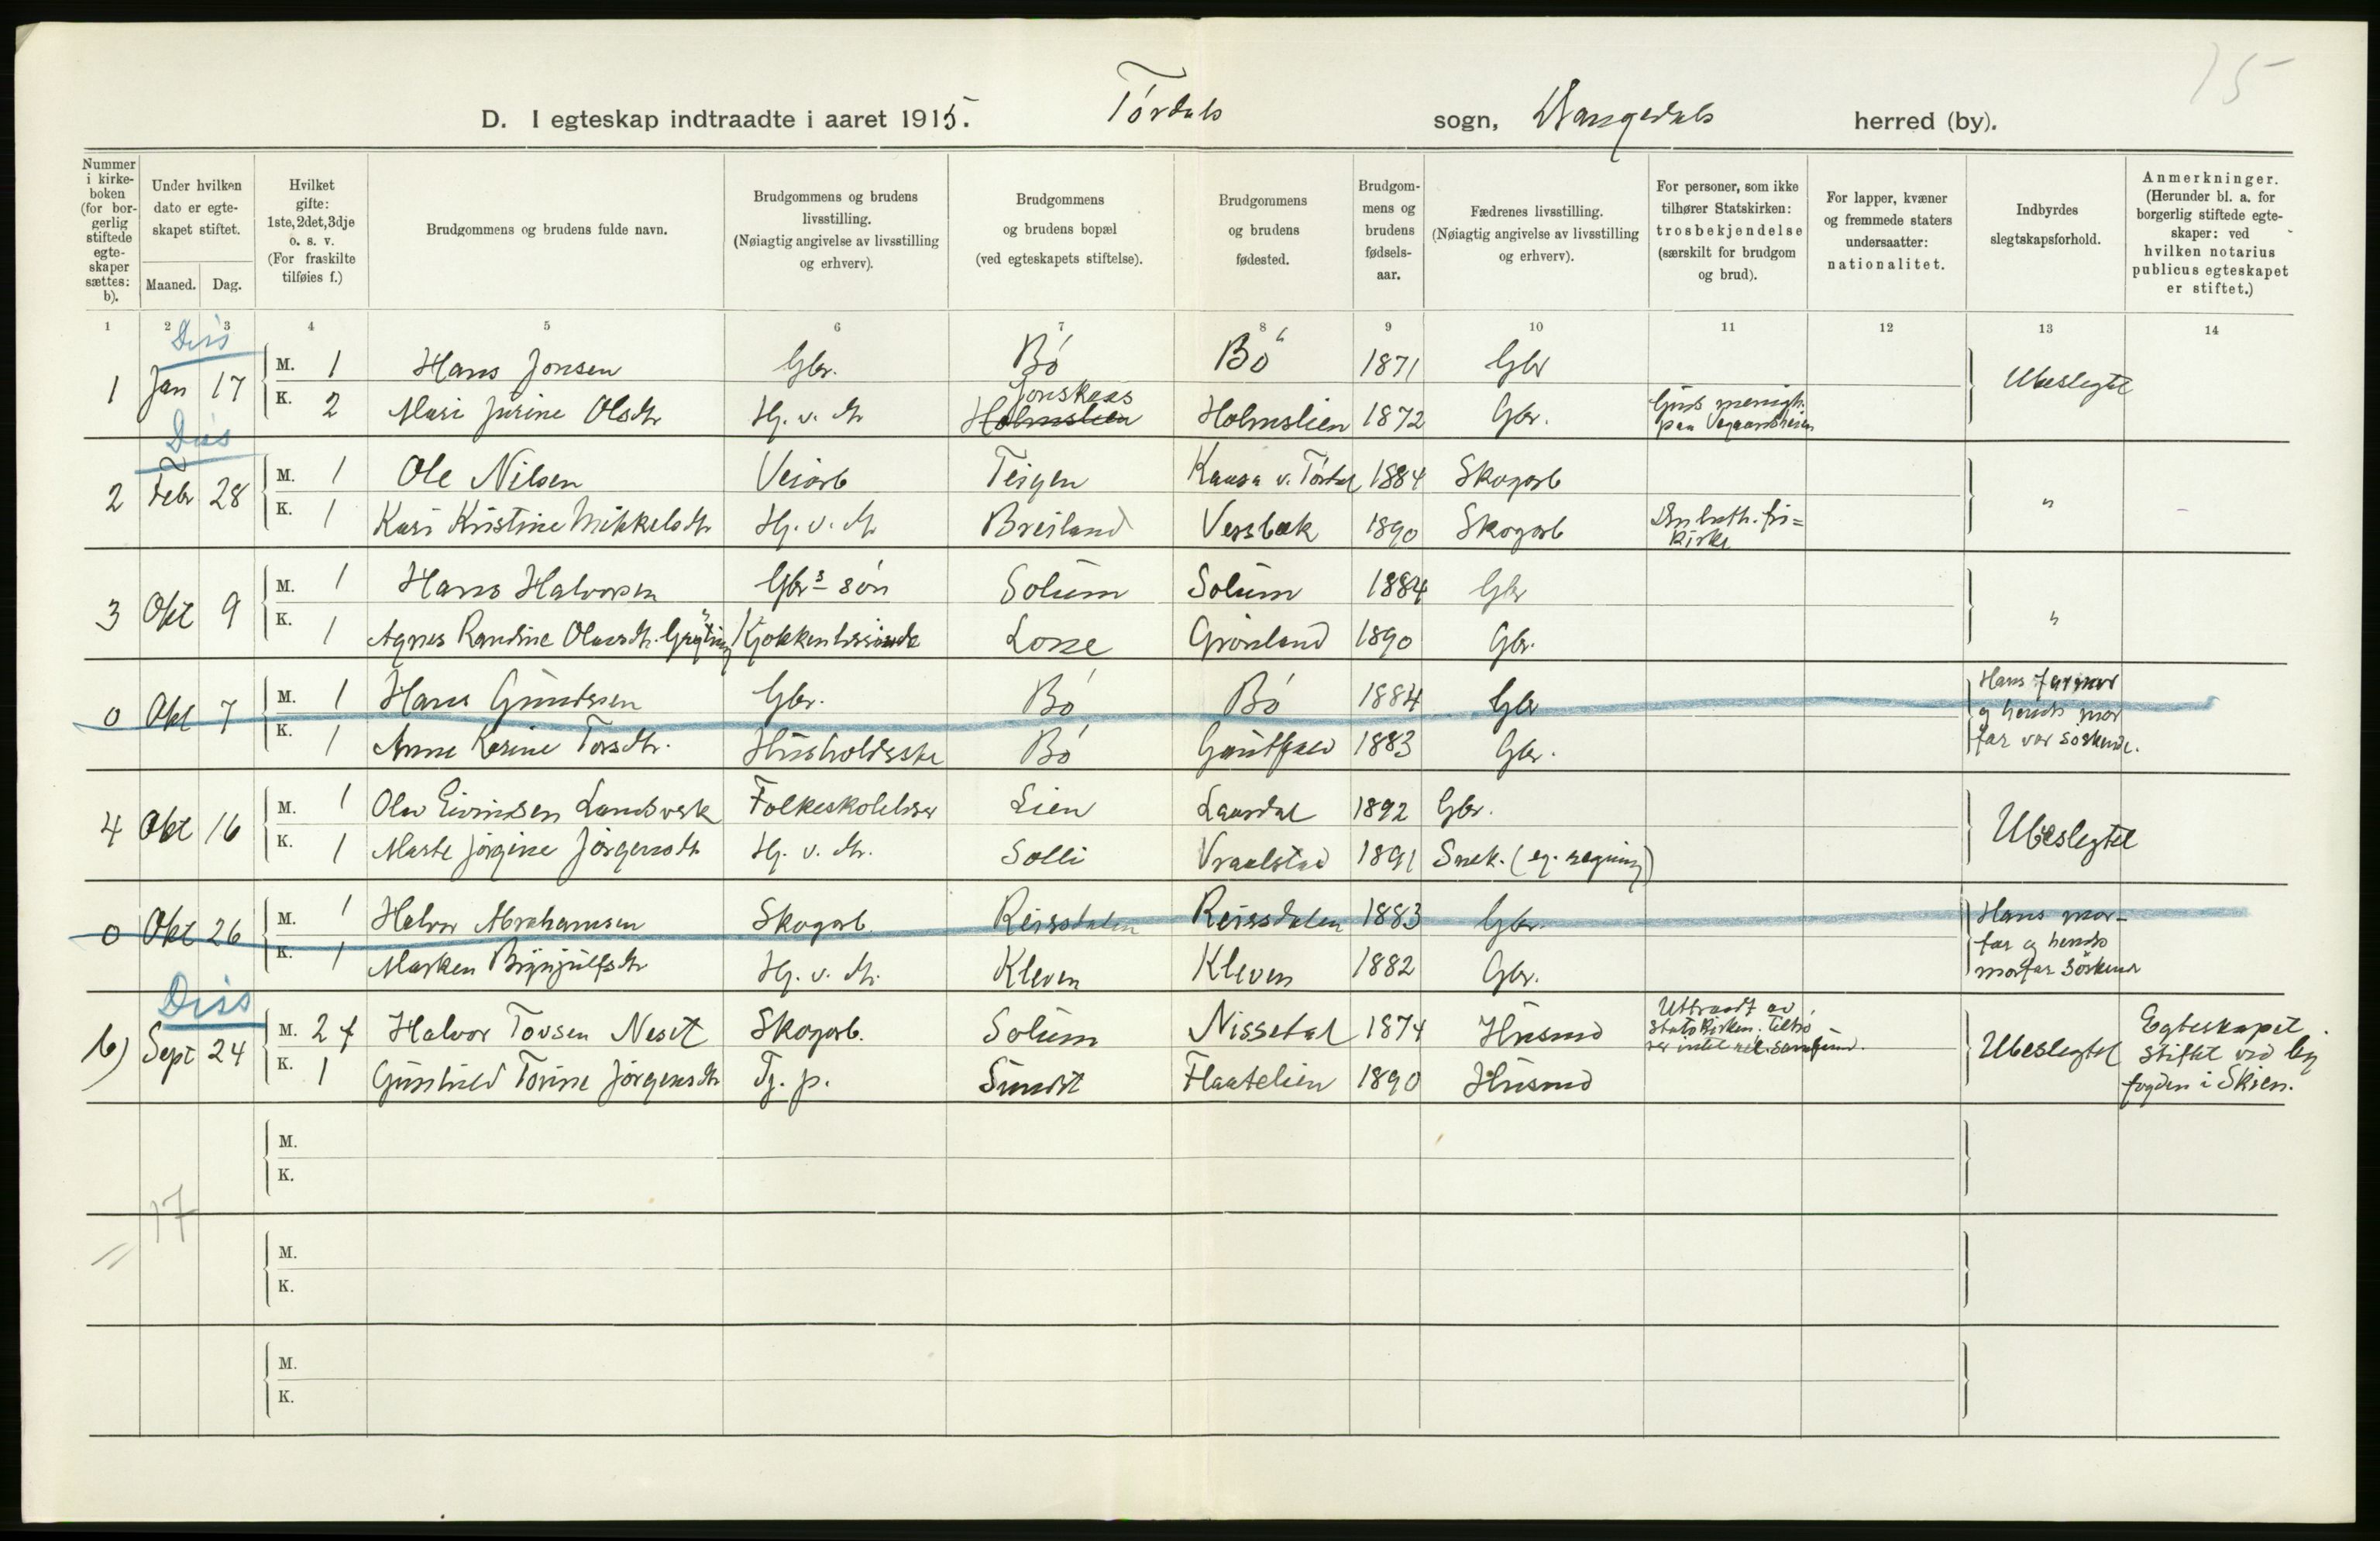 15
D. I egteskap indtraadte i aaret 1915. Tørdals sogn, Drangedals herred (by).
Nummer i kirkeboken (for borgerlig stiftede egteskaper sættes: b).
Under hvilken dato er egteskapet stiftet.
Maaned. Dag.
Hvilket gifte: 1ste, 2det, 3dje o. s. v. (For fraskilte tilføies f.)
Brudgommens og brudens fulde navn.
Brudgommens og brudens livsstilling. (Nøiagtig angivelse av livsstilling og erhverv).
Brudgommens og brudens bopæl (ved egteskapets stiftelse).
Brudgommens og brudens fødested.
Brudgommens og brudens fødselsaar.
Fædrenes livsstilling. (Nøiagtig angivelse av livsstilling og erhverv).
For personer, som ikke tilhører Statskirken: trosbekjendelse (særskilt for brudgom og brud).
For lapper, kvæner og fremmede staters undersaatter: nationalitet.
Indbyrdes slegtskapsforhold.
Anmerkninger. (Herunder bl. a. for borgerlig stiftede egteskaper: ved hvilken notarius publicus egteskapet er stiftet.)
1 2 3 4 5 6 7 8 9 10 11 12 13 14
Diss
1 Jan 17 M. 1 Hans Jonsen Gbr. Bö Bö 1871 Gbr Ubeslegtet
K. 2 Mari Jurine Olsdtr Hj. v. M. Holmslien Jonskaas Holmslien 1872 Gbr. Guds menigh. paa Vegaardsheien
Diss
2 Febr 28 M. 1 Ole Nilsen Veiarb Teigen Kaasa v. Tördal 1884 Skogarb "
K. 1 Kari Kristine Mikkelsdtr Hj. v. M. Breiland Vessbæk 1890 Skogarb Ev. luth. fri=kirke
3 Okt 9 M. 1 Hans Halvorsen Gbrs sön Solum Solum 1884 Gbr "
K. 1 Agnes Randine Olavsdtr. Kjøkkenhusinde Losse Grönland 1890 Gbr.
0 Okt 7 M. 1 Hans Gundersen Gbr. Bö Bö 1884 Gbr Hans farmor
K. 1 Anne Karine Torsdtr. Husholderske Bö Gautfald 1883 Gbr. og hends mor far var söskende.
4 Okt 16 M. 1 Olav Eivindsen Landsverk Folkeskolelærer Lien Laardal 1892 Gbr. Ubeslegtet
K. 1 Marte Jörgine Jörgensdtr Hj. v. M. Solli Vraalstad 1891 Snek. (eg. regning)
0 Okt 26 M. 1 Halvor Abrahamsen Skogarb. Reirsdalen Reirsdalen 1883 Gbr. Hans mor-
K. 1 Marken Brynjulfsdtr Hj. v. M. Kleven Kleven 1882 Gbr. far og hends morfar Söskende
Diss
b) Sept 24 M. 2 f Halvor Tovsen Neset Skogarb. Solum Nissedal 1874 Husmd Uttraadt av statskirken. Tilhörer intet rel. samfund. Ubeslegtet Egteskapet
K. 1 Gunhild Torine Jörgensdtr Tj. p. Sundet Flaatelien 1890 Husmd stiftet ved by fogden i Skien.
M.
K.
17
M.
K.
M.
K.